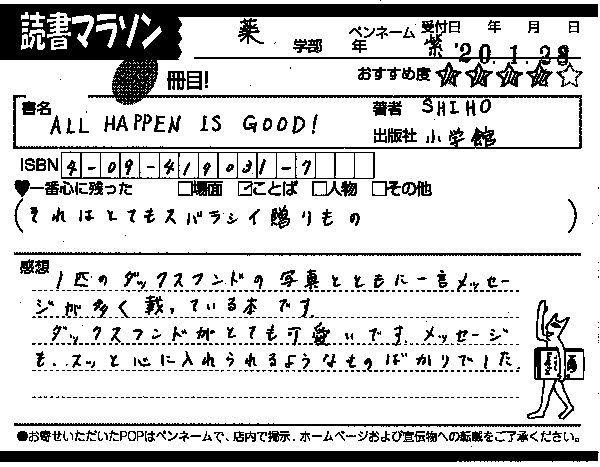 読書マラソン
冊目!
薬 学部 年 ペンネーム 紫
受付日 年 月 日
'20.1.28
おすすめ度 ★★★★☆
書名 ALL HAPPEN IS GOOD!
著者 SHIHO
出版社 小学館
ISBN 4-09-419031-7
♥一番心に残った □場面 ☑ことば □人物 □その他
(それはとてもスバラシイ贈りもの)
感想
1匹のダックスフンドの写真とともに一言メッセー
ジが多く載っている本です。
ダックスフンドがとても可愛いです。メッセージ
も、スッと心に入れられるようなものばかりでした。
●お寄せいただいたPOPはペンネームで、店内で掲示、ホームページおよび宣伝物への転載をご了承ください。